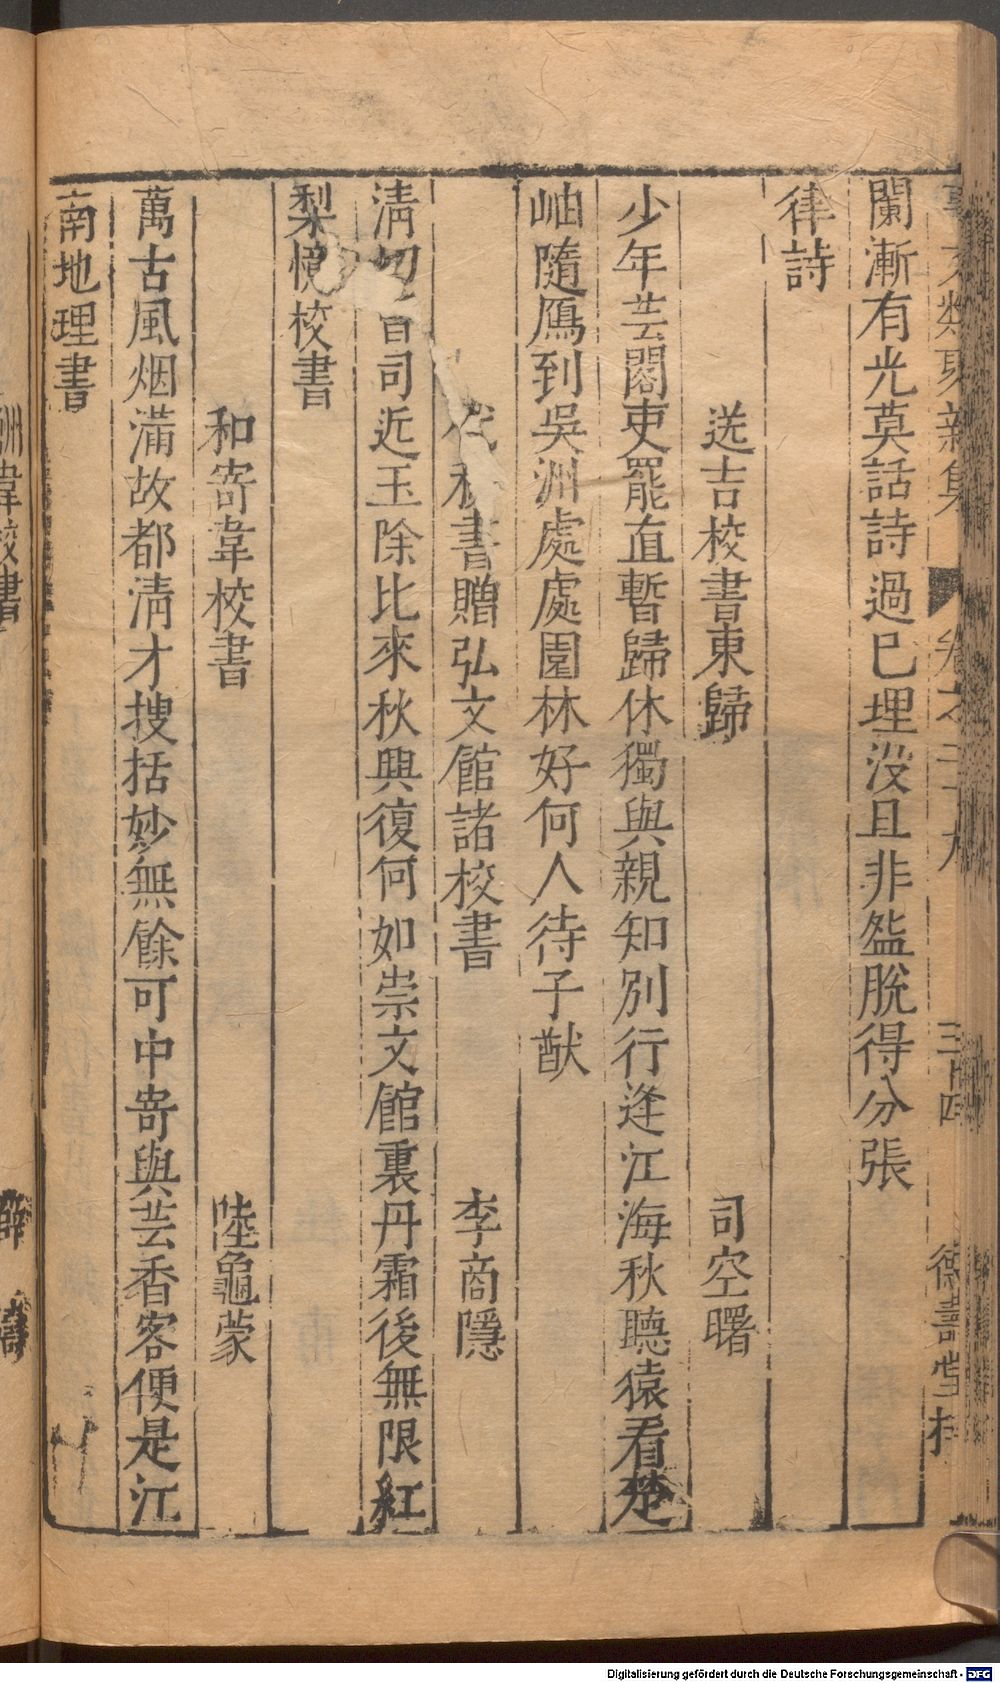 事文類聚新集 卷之二十九 三十四 德壽堂梓
闌漸有光莫話詩過已埋没且非盆脫得分張
律詩
送吉校書東歸 司空曙
少年芸閣吏罷直暫歸休獨與親知別行逢江海秋聽猿看楚
岫隨鴈到吳洲處處園林好何人待子猷
秘書贈弘文館諸校書 李商隱
清切曹司近玉除比來秋興復何如崇文館裏丹霜後無限紅
梨憶校書
和寄韋校書 陸龜蒙
萬古風烟滿故都清才搜括妙無餘可中寄與芸香客便是江
南地理書
酬韋校書 薛濤
Digitalisierung gefördert durch die Deutsche Forschungsgemeinschaft - DFG